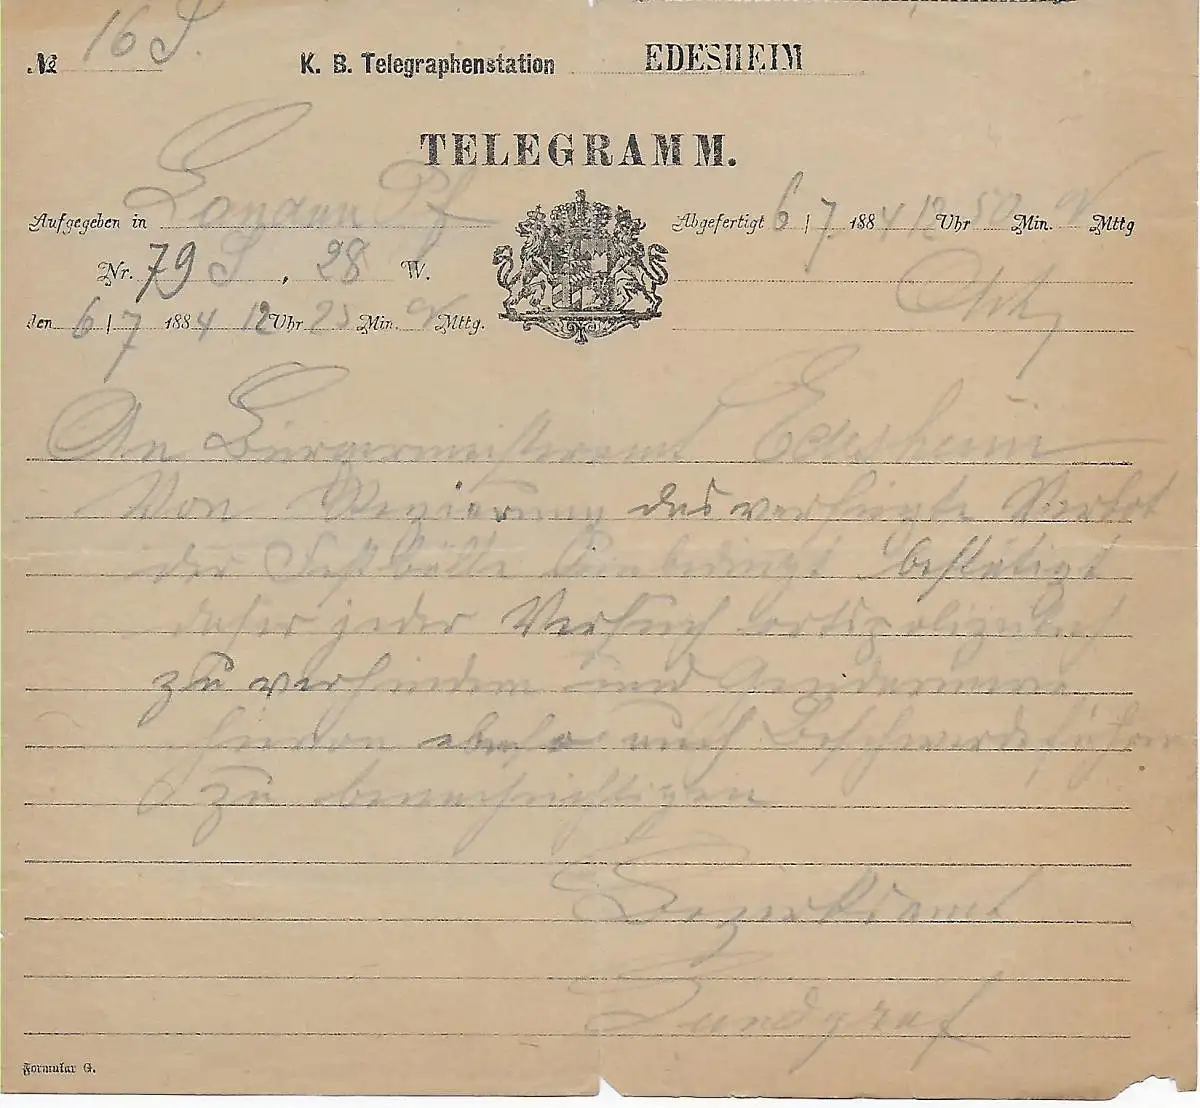 № 16 S.
K. B. Telegraphenstation EDESHEIM
TELEGRAMM.
Aufgegeben in Landau Pf
Abgefertigt 6/7 1884 12 Uhr 50 Min. N Mttg
Nr. 79 S, 28 W.
den 6/7 1884 12 Uhr 25 Min. N Mttg.
An Bürgermeisteramt Edesheim
Von Regierung das verfügte Verbot
der Festbälle unbedingt bestätigt
daher jeder Versuch ortspolizeilich
zu verhindern und Gendarmerie
hievon ebenso auch Beschwerdeführer
zu benachrichtigen
Bezirksamt
Landgraf
Formular G.